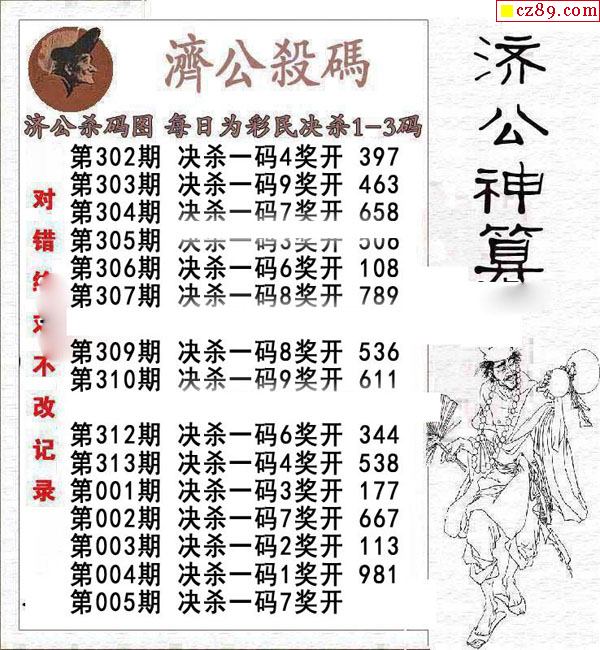 cz89.com
濟公殺碼
济公杀码图 每日为彩民决杀1-3码
第302期 决杀一码4奖开 397
第303期 决杀一码9奖开 463
第304期 决杀一码7奖开 658
第305期 决杀一码3奖开 506
第306期 决杀一码6奖开 108
第307期 决杀一码8奖开 789
第309期 决杀一码8奖开 536
第310期 决杀一码9奖开 611
第312期 决杀一码6奖开 344
第313期 决杀一码4奖开 538
第001期 决杀一码3奖开 177
第002期 决杀一码7奖开 667
第003期 决杀一码2奖开 113
第004期 决杀一码1奖开 981
第005期 决杀一码7奖开
对错
不改记录
济公神算